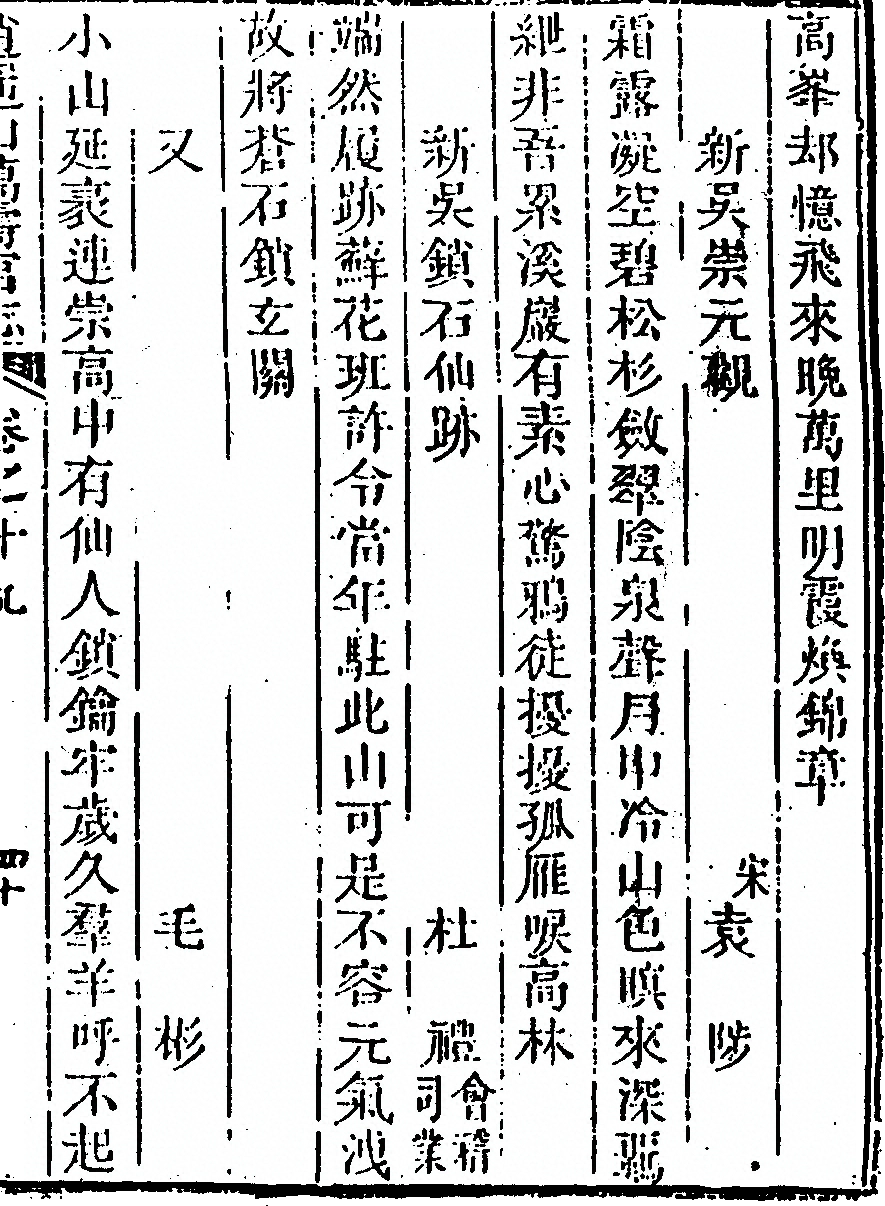 高峯却憶飛來晚萬里明霞煥錦章
新吳崇元觀 宋袁陟
霜露凝空碧松杉斂翠陰泉聲月中冷山色暝來深羈
紲非吾累溪巖有素心驚鴉徒擾擾孤雁唳高林
新吳鎖石仙跡 杜禮會稽司業
端然履跡蘚花班許令當年駐此山可是不容元氣洩
故將蒼石鎖玄關
又 毛彬
小山延袤連崇高中有仙人鎖鑰牢歲久羣羊呼不起
逍遥山萬壽宮志 卷之十九 四十